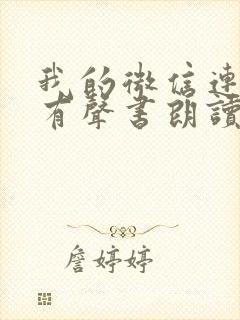 我的微信連
有聲書朗讀
詹婷婷